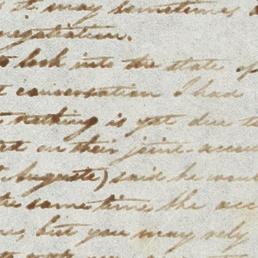 it may sometimes
negotiation.
to look into the state of
conversation I had
nothing is yet due to
on their joint accou
Auguste) said he wou
the same time the acc
but you may rely